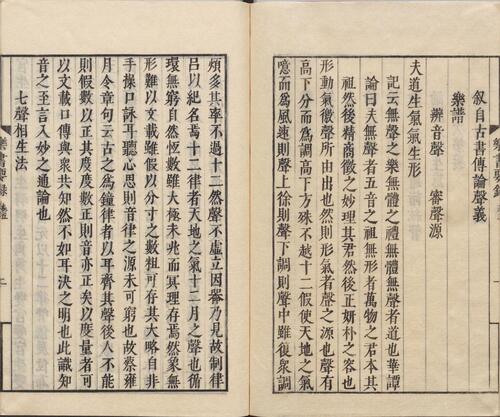 叙自古書傳論聲義
樂譜
辨音聲 審聲源
夫道生氣氣生形
記云無聲之樂無體之禮無體無聲者道也華譚
論曰夫無聲者五音之祖無形者萬物之君本其
祖然後精商徵之妙理其君然後正妍朴之容也
形動氣徵聲所由出也然則形氣者聲之源也聲有
高下分而爲調高下方殊不越十二假使天地之氣
噫而爲風速則聲上徐則聲下調則聲中雖復衆調
煩多其率不過十二然聲不虛立因器乃見故制律
呂以紀名焉十二律者天地之氣十二月之聲也循
環無窮自然恆數雖大極未兆而冥理存焉然象無
形難以文載雖假以分寸之數粗可存其大略自非
手操口詠耳聽心思則音律之源未可窮也故蔡雍
月令章句云古之爲鐘律者以耳齊其聲後人不能
則假數以正其度度數正則音亦正矣以度量者可
以文載口傳與衆共知然不如耳決之明也此識知
音之至言入妙之通論也
七聲相生法
樂書要錄
二